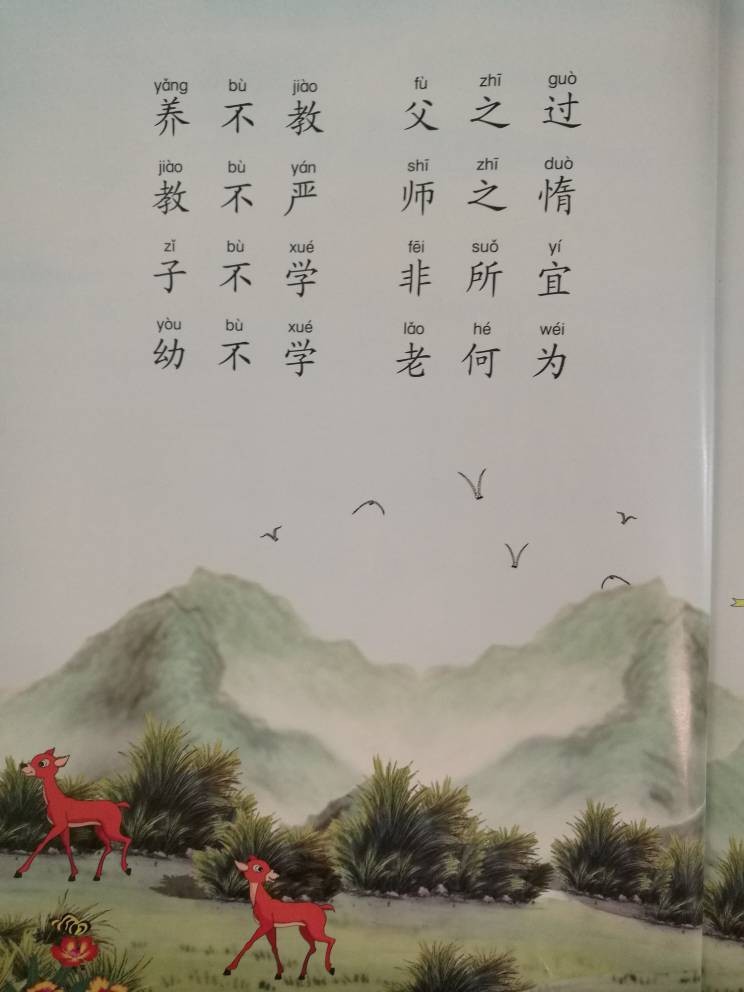 yǎng bù jiào fù zhī guò
养不教 父之过
jiào bù yán shī zhī duò
教不严 师之惰
zǐ bù xué fēi suǒ yí
子不学 非所宜
yòu bù xué lǎo hé wéi
幼不学 老何为